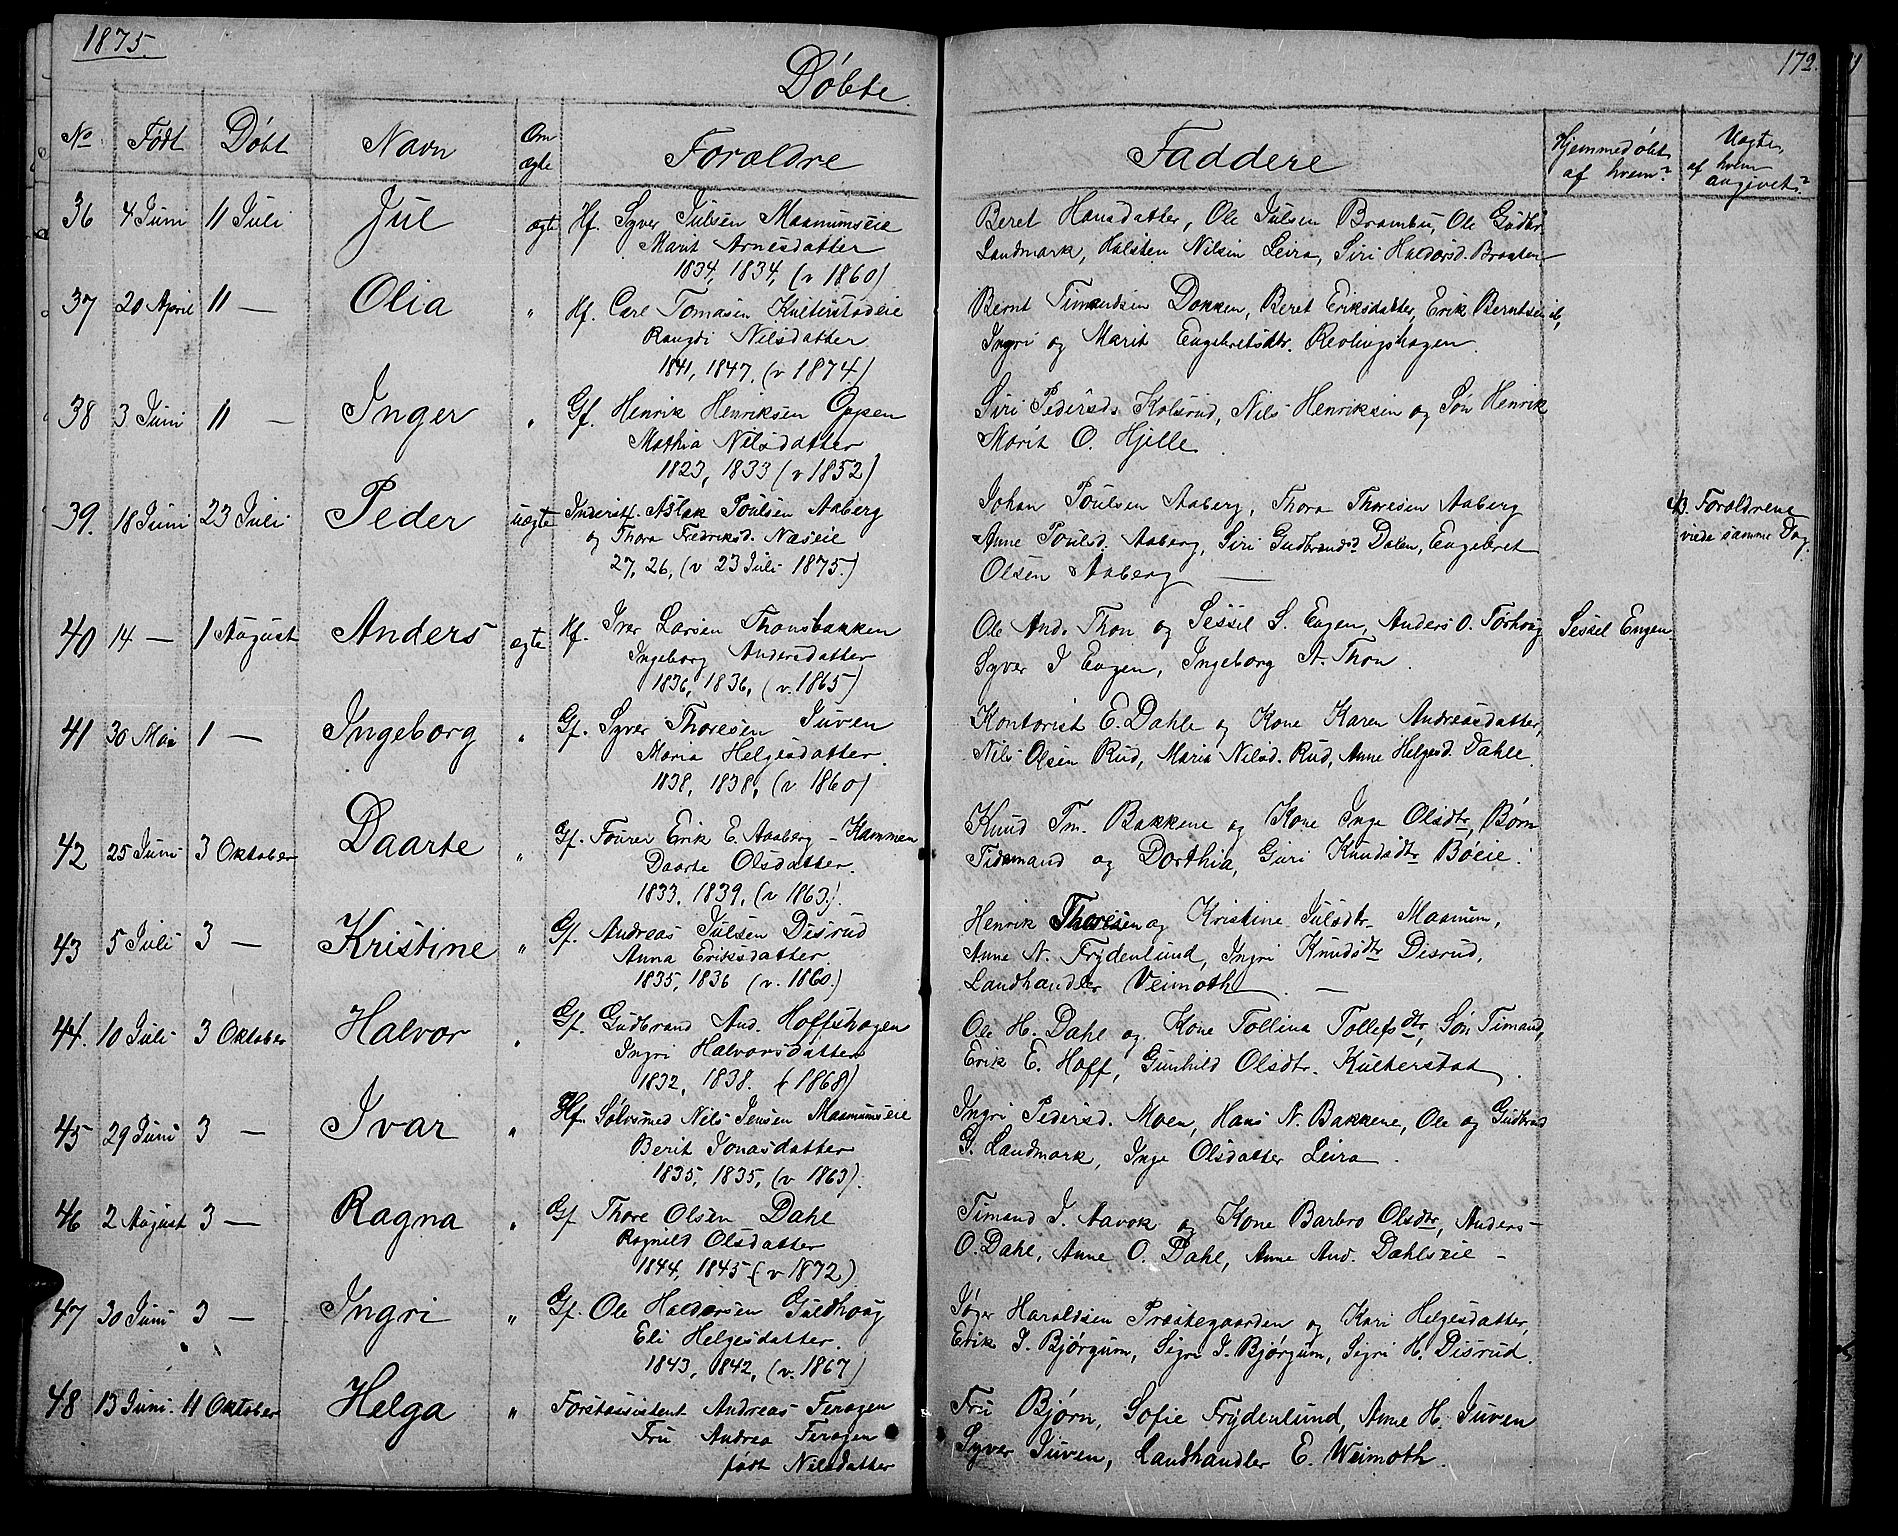 1875.
172.
Døbte.
No Født Døbt Navn Om ægte Forældre Faddere Hjemmedøbt af hvem? Uægte, af hvem angivet?
36 4 Juni 11 Juli Jul ægte Hf. Syver Julsen Maanumseie
Marit Arnesdatter
1834, 1834, (v 1860)
Beret Hansdatter, Ole Julsen Brambu, Ole Gudbr.
Landmark, Halsten Nilsen Leira, Siri Haldorsd. Braaten
37 20 April 11 — Olia " Hf. Carl Tomasen Kulterstadeie
Rangdi Nilsdatter
1841, 1847, (v 1874)
Bernt Timandsen Dokken, Beret Eriksdatter, Erik Berntsen ib,
Ingri og Marit Engebretsdtr. Revlingshagen.
38 3 Juni 11 — Inger " Gf. Henrik Henriksen Oppen
Mathia Nilsdatter
1823, 1833 (v 1852)
Siri Pedersd. Kolsrud, Nils Henriksen og Søn Henrik
Marit O. Hjelle.
39. 18 Juni 23 Juli Peder uægte Inderst. Aslak Poulsen Aaberg
og Thora Fredriksd. Næseie
27, 26, (v 23 Juli 1875.)
Johan Poulsen Aaberg, Thora Thoresen Aaberg
Anne Poulsd. Aaberg, Siri Gudbrandsd Dalen, Engebret
Olsen Aaberg —
Forældrene
viede samme Dag.
40 14 — 1 August Anders ægte Hf. Iver Larsen Thonsbakken
Ingeborg Andersdatter
1836, 1836, (v. 1865)
Ole And. Thon og Sessel S. Engen, Anders O. Tørhaug
Syver I Engen, Ingeborg A. Thon.
Sessel Engen
41 30 Mai 1 — Ingeborg " Gf. Syver Thoresen Juven
Maria Helgesdatter.
1838, 1838, (v. 1860)
Kontorist E. Dahle og Kone Karen Andreasdatter,
Nils Olsen Rud, Maria Nilsd. Rud, Anne Helgesd. Dahle.
42 25 Juni 3 Oktober Daarte " Gf. Fourer Erik E. Aaberg - Kammen
Daarte Olsdatter.
1833, 1839, (v 1863).
Knud Tm. Bakkene og Kone Inge Olsdtr, Børn
Tidemand og Dorthia, Guri Knudsdtr Bøeie.
43 5 Juli 3 — Kristine " Gf. Andreas Julsen Disrud
Anna Eriksdatter.
1835, 1836 (v. 1860.)
Henrik Thoresen og Kristine Julsdtr. Maanum,
Anne N. Frydenlund, Ingri Knudsdtr Disrud,
Landhandler Veimoth —
44. 10 Juli 3 Oktober Halvor " Gf. Gudbrand And. Hoffshagen
Ingri Halvorsdatter
1832, 1838. (v 1868)
Ole H. Dahl og Kone Tollina Tollefsdtr, Søn Timand,
Erik E. Hoff, Gunhild Olsdtr. Kulterstad.
45 29 Juni 3 — Ivar " Hf. Sølvsmed Nils Jensen Maanumseie
Berit Jonasdatter
1835, 1835, (v 1863).
Ingri Pedersd. Moen, Hans N. Bakkene, Ole og Gudbrand
G. Landmark, Inge Olsdatter Leira.
46 2 August 3 — Ragna " Gf Thore Olsen Dahl
Ragnild Olsdatter
1844, 1845 (v 1872)
Timand J. Aavok og Kone Barbro Olsdtr, Anders
O. Dahl, Anne O. Dahl, Anne And. Dahlseie —
47 30 Juni 3 — Ingri " Gf. Ole Haldorsen Guldhaug
Eli Helgesdatter.
1843, 1842, (v. 1867)
Jøger Haraldsen Præstegaarden og Kari Helgesdatter,
Erik I. Bjørgum, Sigri I. Bjørgum, Sigri H. Disrud.
48 13 Juni. 11 Oktober Helga " Forstassistent Andreas Feragen
Fru Andrea Feragen
født Nilsdatter
Fru Bjørn, Sofie Frydenlund, Anne H. Juven
Syver Juven, Landhandler E. Weimoth.